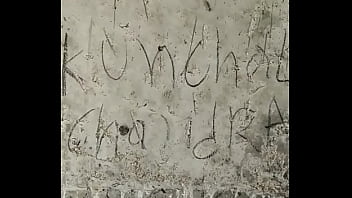 Kunchal
Chandra